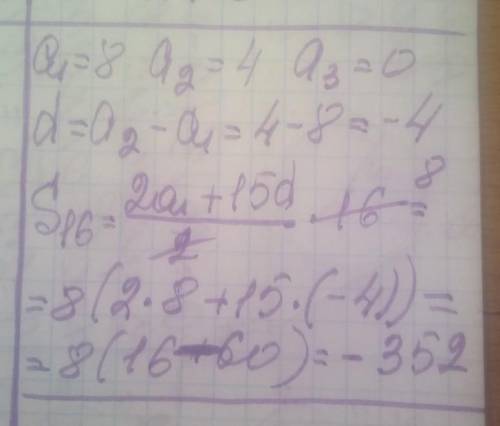 a₁=8 a₂=4 a₃=0
d=a₂-a₁=4-8=-4
S₁₆= (2a₁+15d)/2 · 16 ⁸ =
=8(2·8+15·(-4))=
=8(16-60)=-352